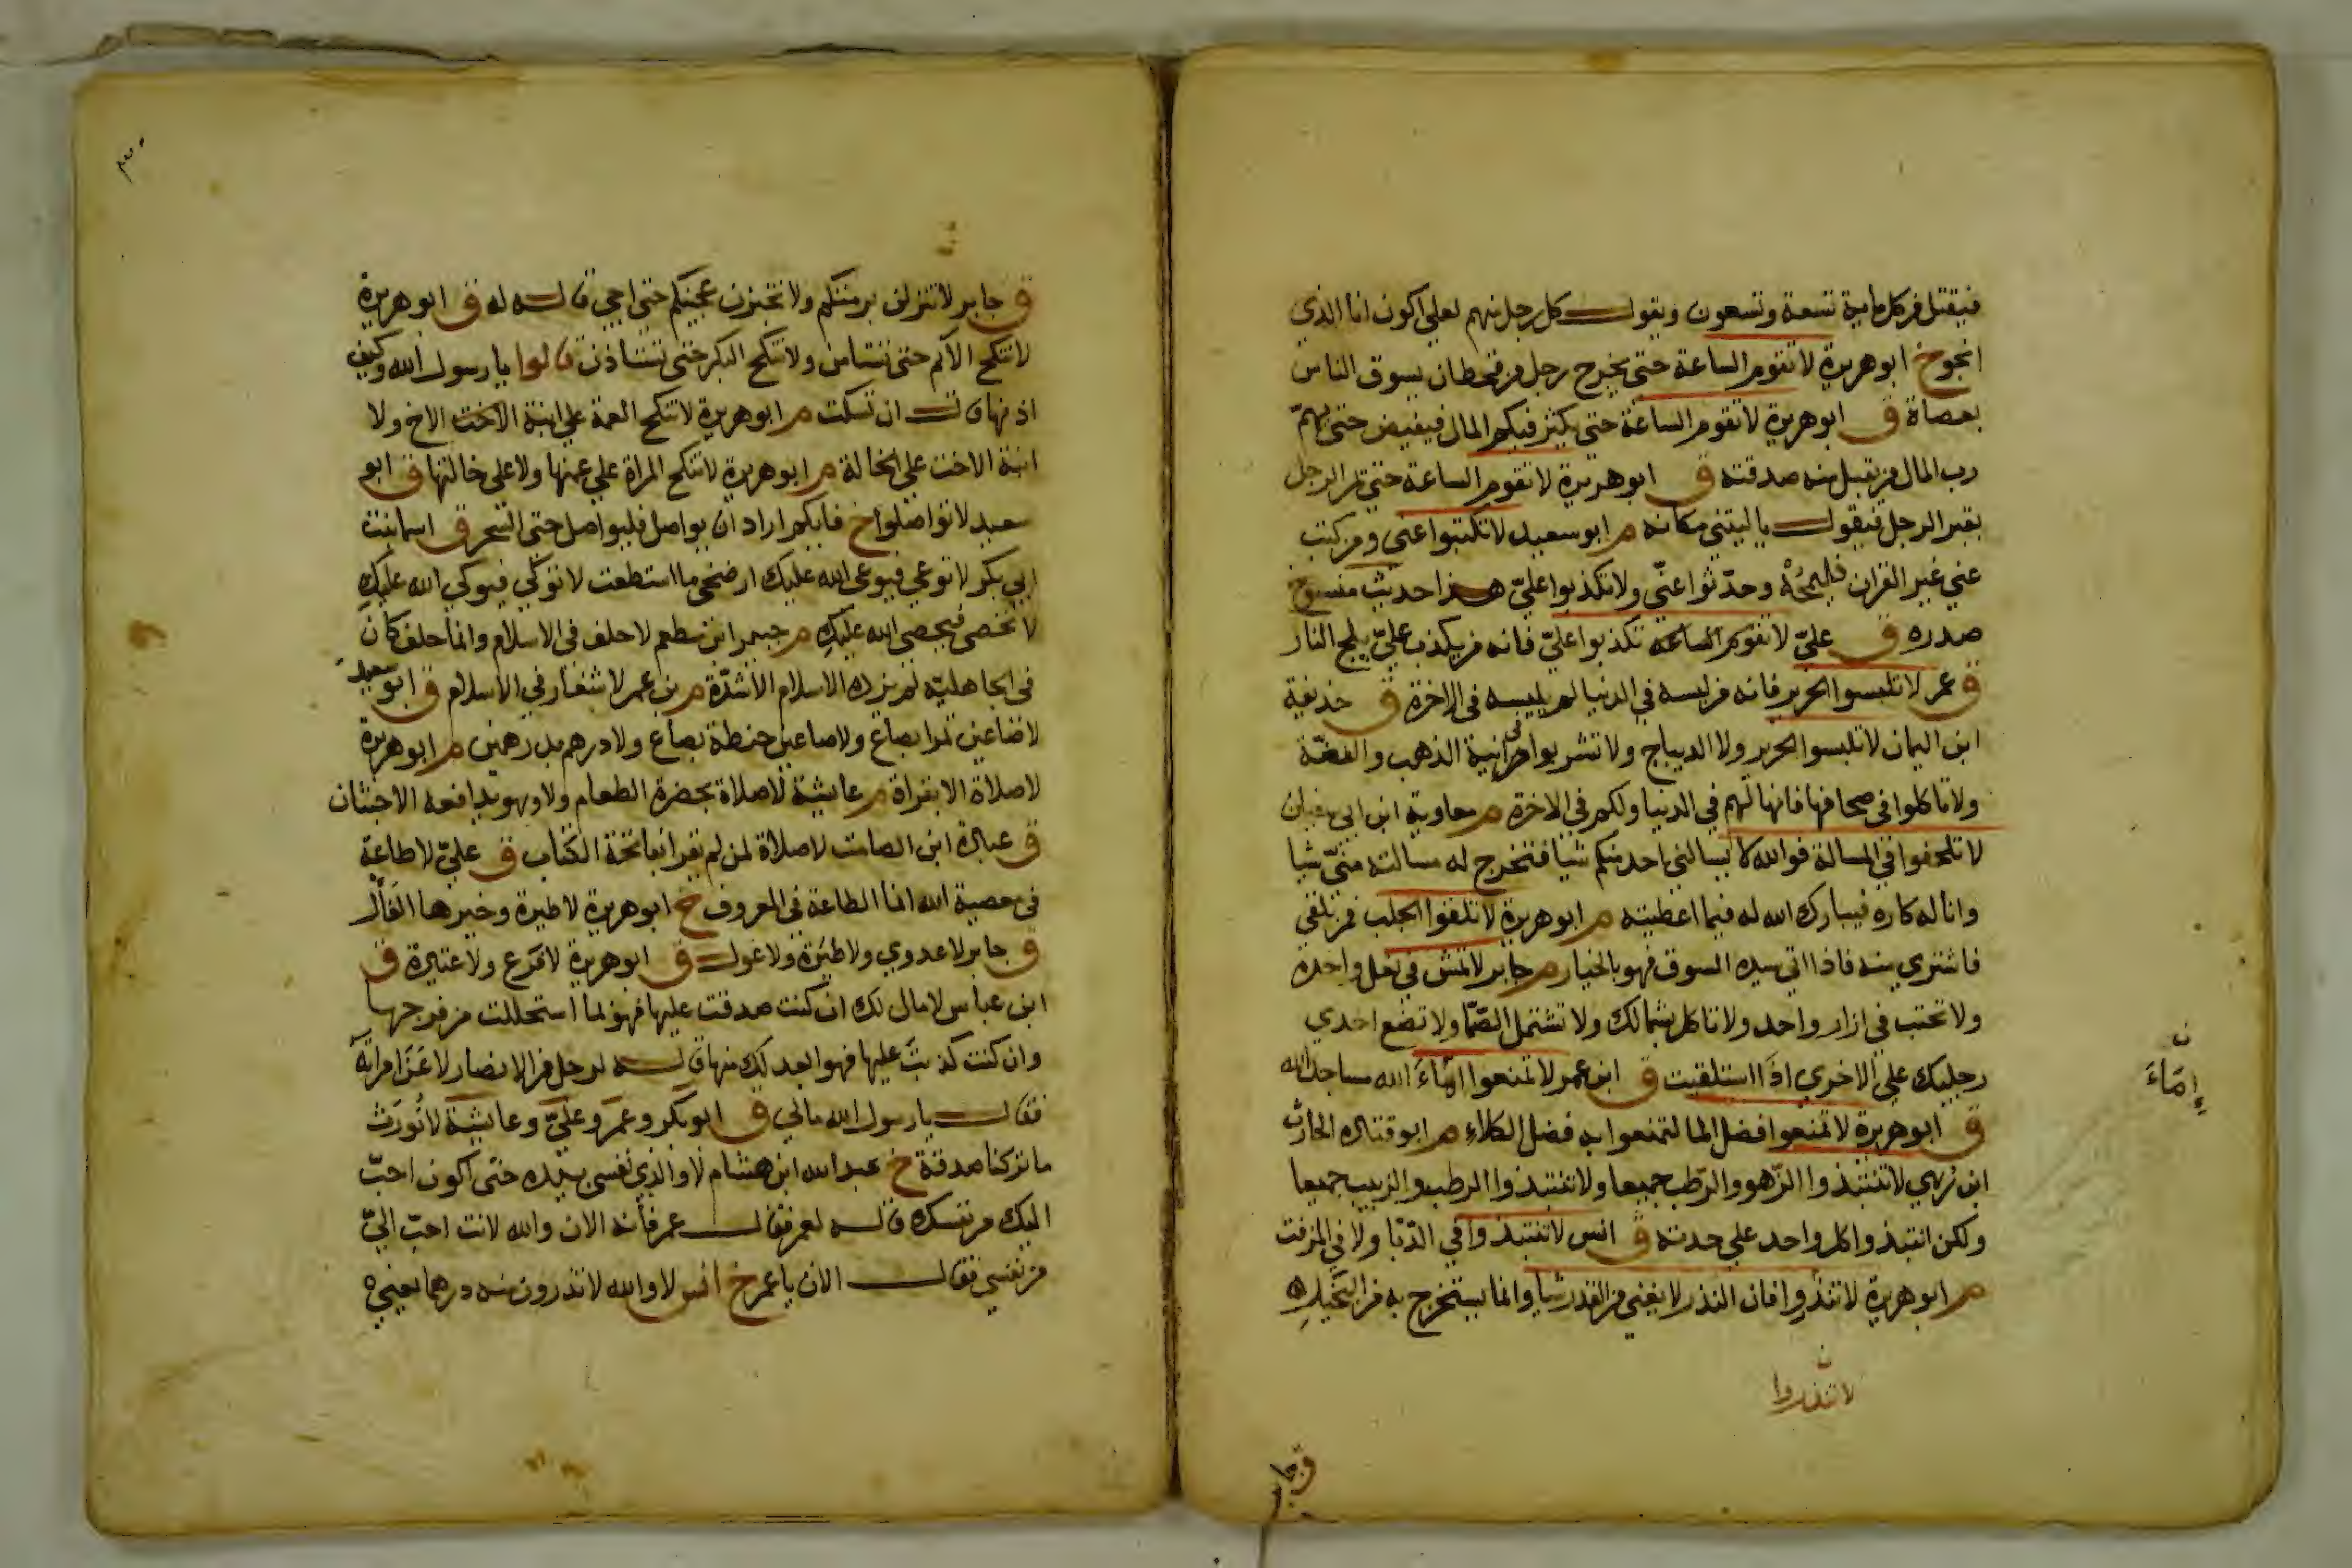 فيقتل من كل ماية تسعة وتسعون ويقول كل رجل منهم لعلي اكون انا الذي
انجو خ ابو هريرة لا تقوم الساعة حتى يخرج رجل من قحطان يسوق الناس
بعصاة ق ابو هريرة لا تقوم الساعة حتى يكثر فيكم المال فيفيض حتى يهمّ
رب المال من يقبل منه صدقته ق ابو هريرة لا تقوم الساعة حتى يمر الرجل
بقبر الرجل فيقول يا ليتني مكانه م ابو سعيد لا تكتبوا عني ومن كتب
عني غير القران فليمحُهُ وحدّثوا عنّي ولا تكذبوا عليّ هذا حديث منسوخ
صدره ق عليّ لا تقوم الساعة تكذبوا عليّ فانه من يكذب عليّ يلج النار
ق عمر لا تلبسوا الحرير فانه من لبسه في الدنيا لم يلبسه في الاخرة ق حذيفة
ابن اليمان لا تلبسوا الحرير ولا الديباج ولا تشربوا في انية الذهب والفضّة
ولا تاكلوا في صحافها فانها لهم في الدنيا ولكم في الاخرة م معاوية ابن ابي سفيان
لا تلحفوا في المسالة فوالله لا يسالني احد منكم شيا فتخرج له مسالته منّي شيا
وانا له كاره فيبارك الله له فيما اعطيته م ابو هريرة لا تلقوا الجلب فمن تلقى
فاشتري منه فاذا اتى سيده السوق فهو بالخيار م جابر لا تمش في نعل واحدة
ولا تحتب في ازار واحد ولا تاكل بشمالك ولا تشتمل الصّمّا ولا تضع احدي
رجليك على الاخري اذا استلقيت ق ابن عمر لا تمنعوا اماءَ الله مساجد الله
إمّاءَ
ق ابو هريرة لا تمنعوا فضل الما لتمنعوا به فضل الكلاءِ م ابو قتادة الحارث
ابن رِبعي لا تنتبذوا الزّهو والرّطب جميعا ولا تنتبذوا الرطب والزبيب جميعا
ولكن انتبذوا كل واحد على حدته ق انس لا تنتبذوا في الدّبّا ولا في المزفت
م ابو هريرة لا تنذروا فان النذر لا يغني من القدر شيا وانما يستخرج به من البخيل
لا تنذروا
ق جابر
ق جابر لا تنزلن برمتكم ولا تخبزن عجينكم حتى اجي قاله له ق ابو هريرة
لا تنكح الايم حتى تستامر ولا تنكح البكر حتى تستاذن قالوا يا رسول الله وكيف
اذنها قال ان تسكت م ابو هريرة لا تنكح العمة على ابنة الاخت الاخ ولا
ابنة الاخت على الخالة م ابو هريرة لا تنكح المراة على عمتها ولا على خالتها ق ابو
سعيد لا تواصلوا خ فايكم اراد ان يواصل فليواصل حتى السّحر ق اسما بنت
ابي بكر لا توعي فيوعي الله عليك ارضخي ما استطعت لا توكي فيوكي الله عليكِ
لا تحصي فيحصي الله عليكِ م جبير ابن مطعم لا حلف في الاسلام وانما حلف كان
في الجاهليّة لم يزده الاسلام الا شدّة م بن عمر لا شغار في الاسلام ق ابو سعيد
لا صاعين تمرا بصاع ولا صاعين حنطة بصاع ولا درهم بدرهمين م ابو هريرة
لا صلاة الا بقراة م عايشة لا صلاة بحضرة الطعام ولا وهو يدافعه الاخبثان
ق عبادة ابن الصامت لا صلاة لمن لم يقرا بفاتحة الكتاب ق عليّ لا طاعة
في معصية الله انما الطاعة في المعروف خ ابو هريرة لا طيرة وخيرها الفَأْل
ق جابر لا عدوي ولا طيَرة ولا غول ق ابو هريرة لا فرَع ولا عتيرة ق
ابن عباس لا مال لك ان كنت صدقت عليها فهو بما استحللت من فرجها
وان كنت كذبت عليها فهو ابعد لك منها قاله لرجل من الانصار لاعَنَ امراتَهُ
فقال يا رسول الله مالي ق ابو بكر وعمَر وعليّ وعايشة لا نُورَث
ما تركنا صدقة خ عبد الله ابن هشام لا والذي نفسي بيده حتّى اكون احبّ
اليك من نفسك قاله لعمر فقال عمر فانه الان والله لانت احبّ اليّ
من نفسي فقال الان يا عمر خ انس لا والله لا تذرون منه درهما يعني